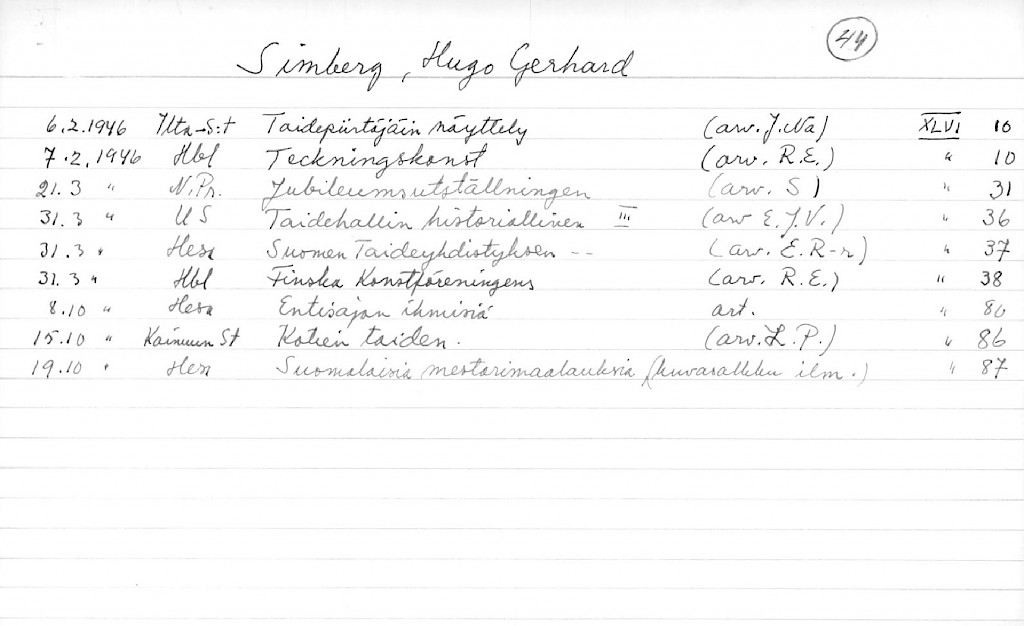 44
Simberg, Hugo Gerhard
6.2.1946 Ilta-S:t Taidepiirtäjäin näyttely (arv. J. Na) XLVI 10
7.2.1946 Hbl Teckningskonst (arv. R.E.) " 10
21.3 " N.Pr. Jubileumsutställningen (arv. S) " 31
31.3 " US Taidehallin historiallinen III (arv E.J.V.) " 36
31.3 " Hesa Suomen Taideyhdistyksen -- (arv. E.R-r) " 37
31.3 " Hbl Finska Konstföreningens (arv. R.E.) " 38
8.10 " Hesa Entisajan ihmisiä art. " 86
15.10 " Kainuun St Kotien taiden. (arv. L.P.) " 86
19.10 " Hesa Suomalaisia mestarimaalauksia (kuvasalkku ilm.) " 87